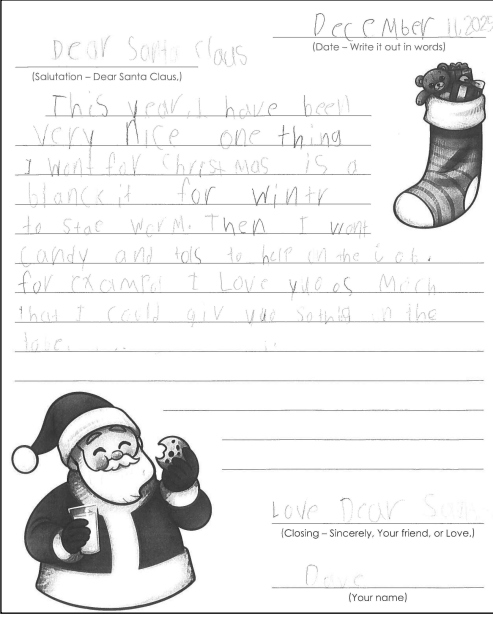 December 11, 2025
(Date – Write it out in words)
Dear Santa Claus
(Salutation – Dear Santa Claus,)
This year, I have been
very nice one thing
I want for Christmas is a
blanckit for wintr
to stae worm. Then I want
Candy and tols to help in the
for exampel I Love yue os Mech
that I could giv yue sothing in the
Love Dear
(Closing – Sincerely, Your friend, or Love,)
Dave
(Your name)